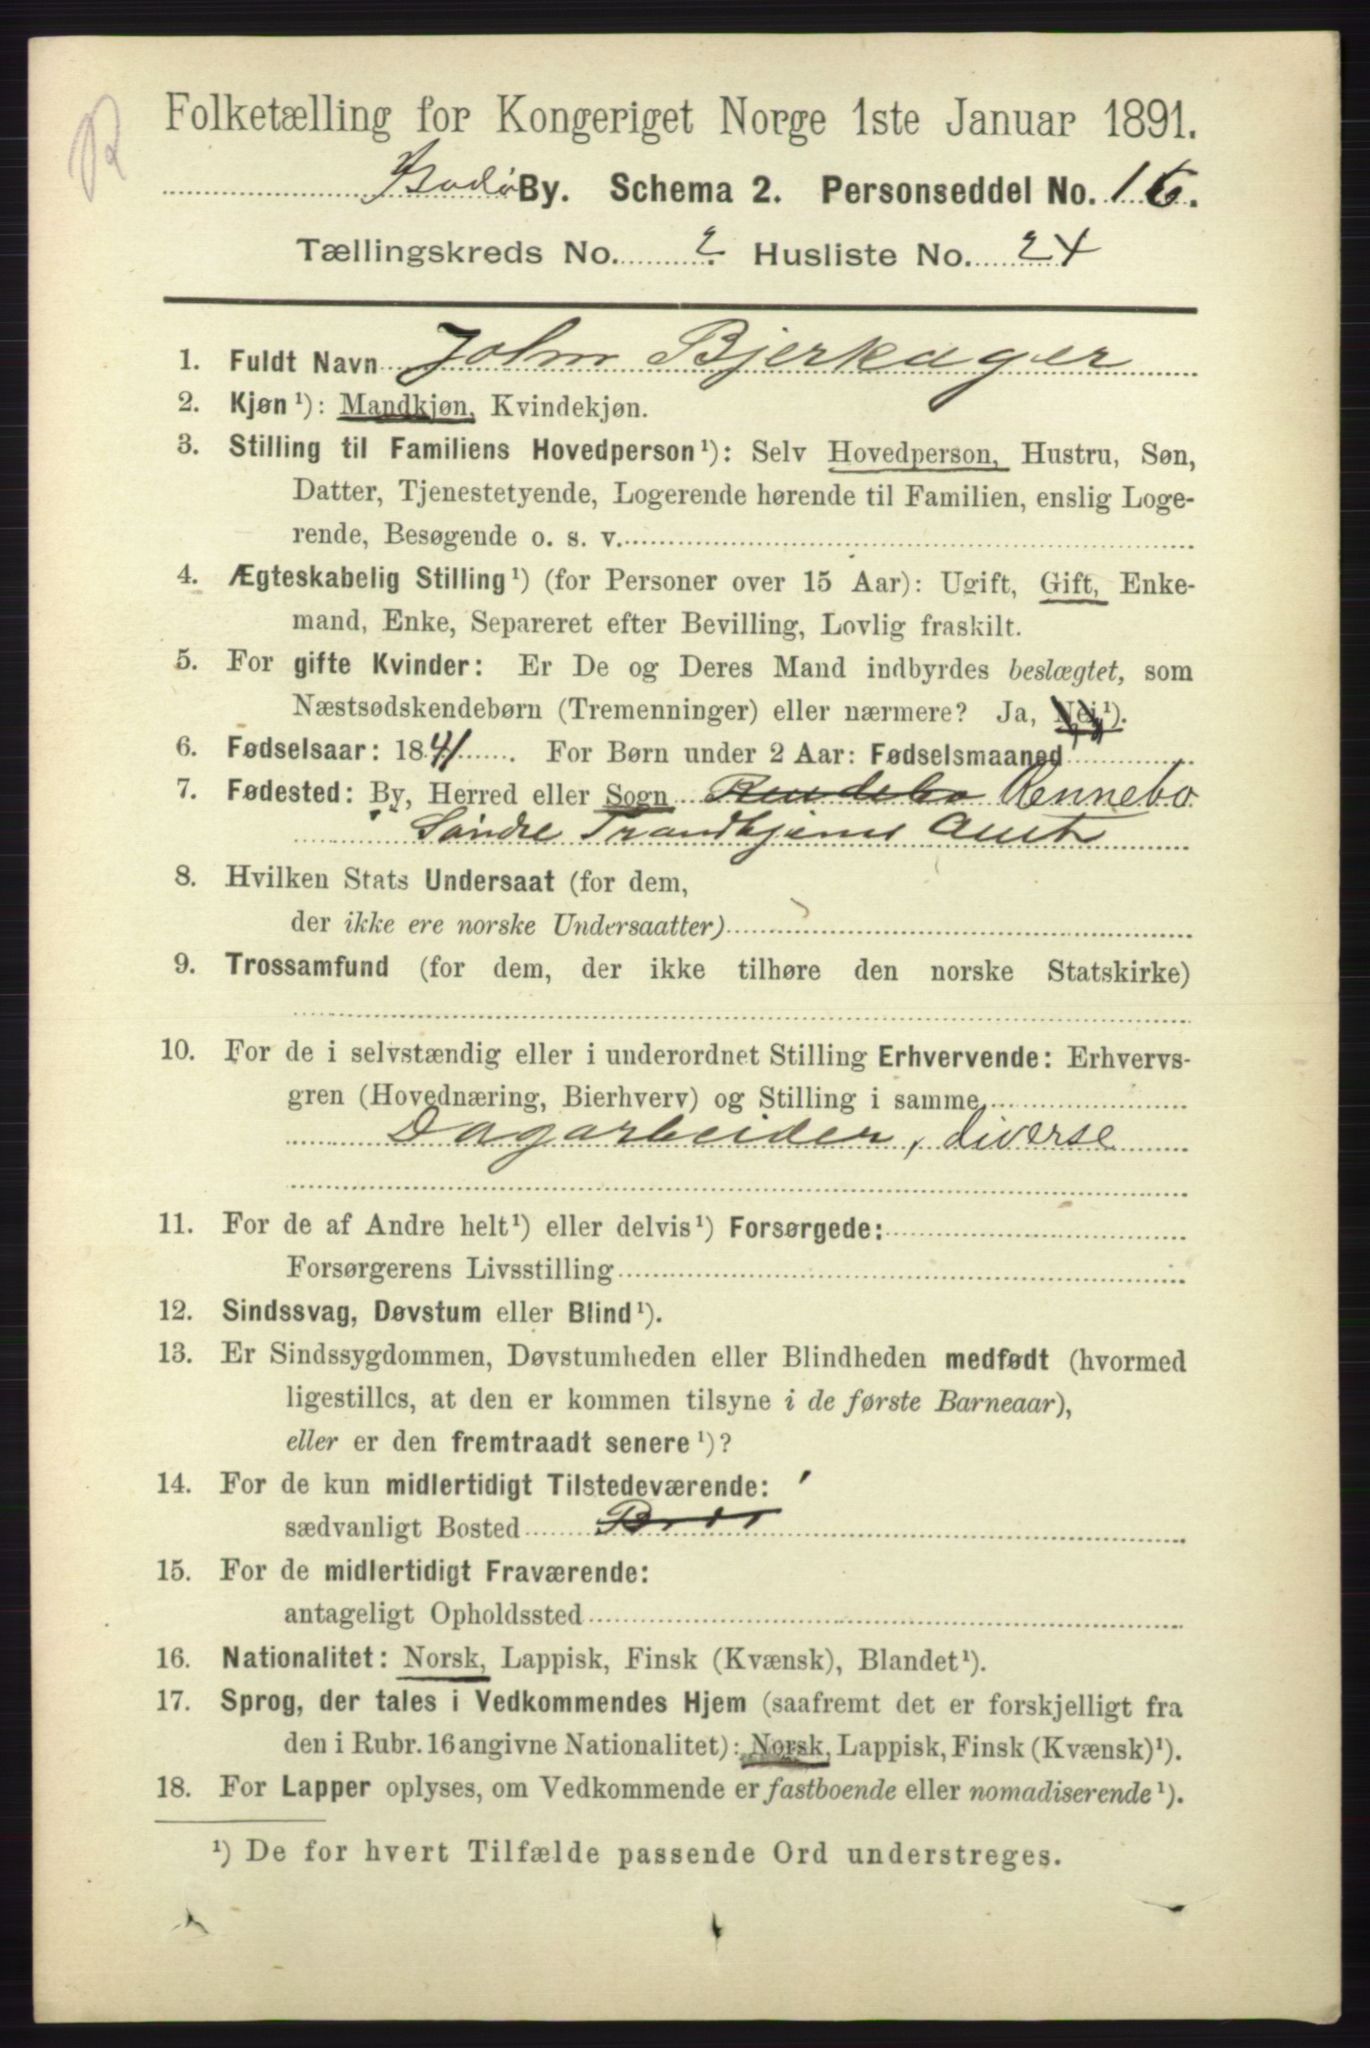 R
Folketælling for Kongeriget Norge 1ste Januar 1891.
Bodø By. Schema 2. Personseddel No. 16.
Tællingskreds No. 2 Husliste No. 24
1. Fuldt Navn John Bjerkager
2. Kjøn¹): Mandkjøn, Kvindekjøn.
3. Stilling til Familiens Hovedperson¹): Selv Hovedperson, Hustru, Søn,
Datter, Tjenestetyende, Logerende hørende til Familien, enslig Loge-
rende, Besøgende o. s. v.
4. Ægteskabelig Stilling¹) (for Personer over 15 Aar): Ugift, Gift, Enke-
mand, Enke, Separeret efter Bevilling, Lovlig fraskilt.
5. For gifte Kvinder: Er De og Deres Mand indbyrdes beslægtet, som
Næstsødskendebørn (Tremenninger) eller nærmere? Ja, Nej¹).
6. Fødselsaar: 1841. For Børn under 2 Aar: Fødselsmaaned
7. Fødested: By, Herred eller Sogn Rendebo Rennebo
Søndre Trondhjems Amt
8. Hvilken Stats Undersaat (for dem,
der ikke ere norske Undersaatter)
9. Trossamfund (for dem, der ikke tilhøre den norske Statskirke)
10. For de i selvstændig eller i underordnet Stilling Erhvervende: Erhvervs-
gren (Hovednæring, Bierhverv) og Stilling i samme
Dagarbeider, diverse
11. For de af Andre helt¹) eller delvis¹) Forsørgede:
Forsørgerens Livsstilling
12. Sindssvag, Døvstum eller Blind¹).
13. Er Sindssygdommen, Døvstumheden eller Blindheden medfødt (hvormed
ligestilles, at den er kommen tilsyne i de første Barneaar),
eller er den fremtraadt senere¹)?
14. For de kun midlertidigt Tilstedeværende:
sædvanligt Bosted
15. For de midlertidigt Fraværende:
antageligt Opholdssted
16. Nationalitet: Norsk, Lappisk, Finsk (Kvænsk), Blandet¹).
17. Sprog, der tales i Vedkommendes Hjem (saafremt det er forskjelligt fra
den i Rubr. 16 angivne Nationalitet): Norsk, Lappisk, Finsk (Kvænsk)¹).
18. For Lapper oplyses, om Vedkommende er fastboende eller nomadiserende¹).
¹) De for hvert Tilfælde passende Ord understreges.